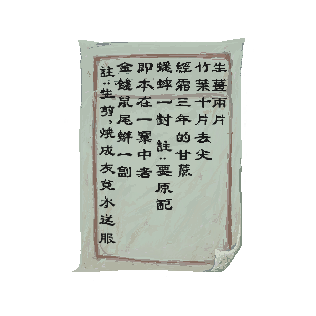 生薑兩片
竹葉十片去尖
經霜三年的甘蔗
蟋蟀一對 註:要原配
即本在一窠中者
金錢鼠尾辮一副
註:生剪,燒成灰兌水送服